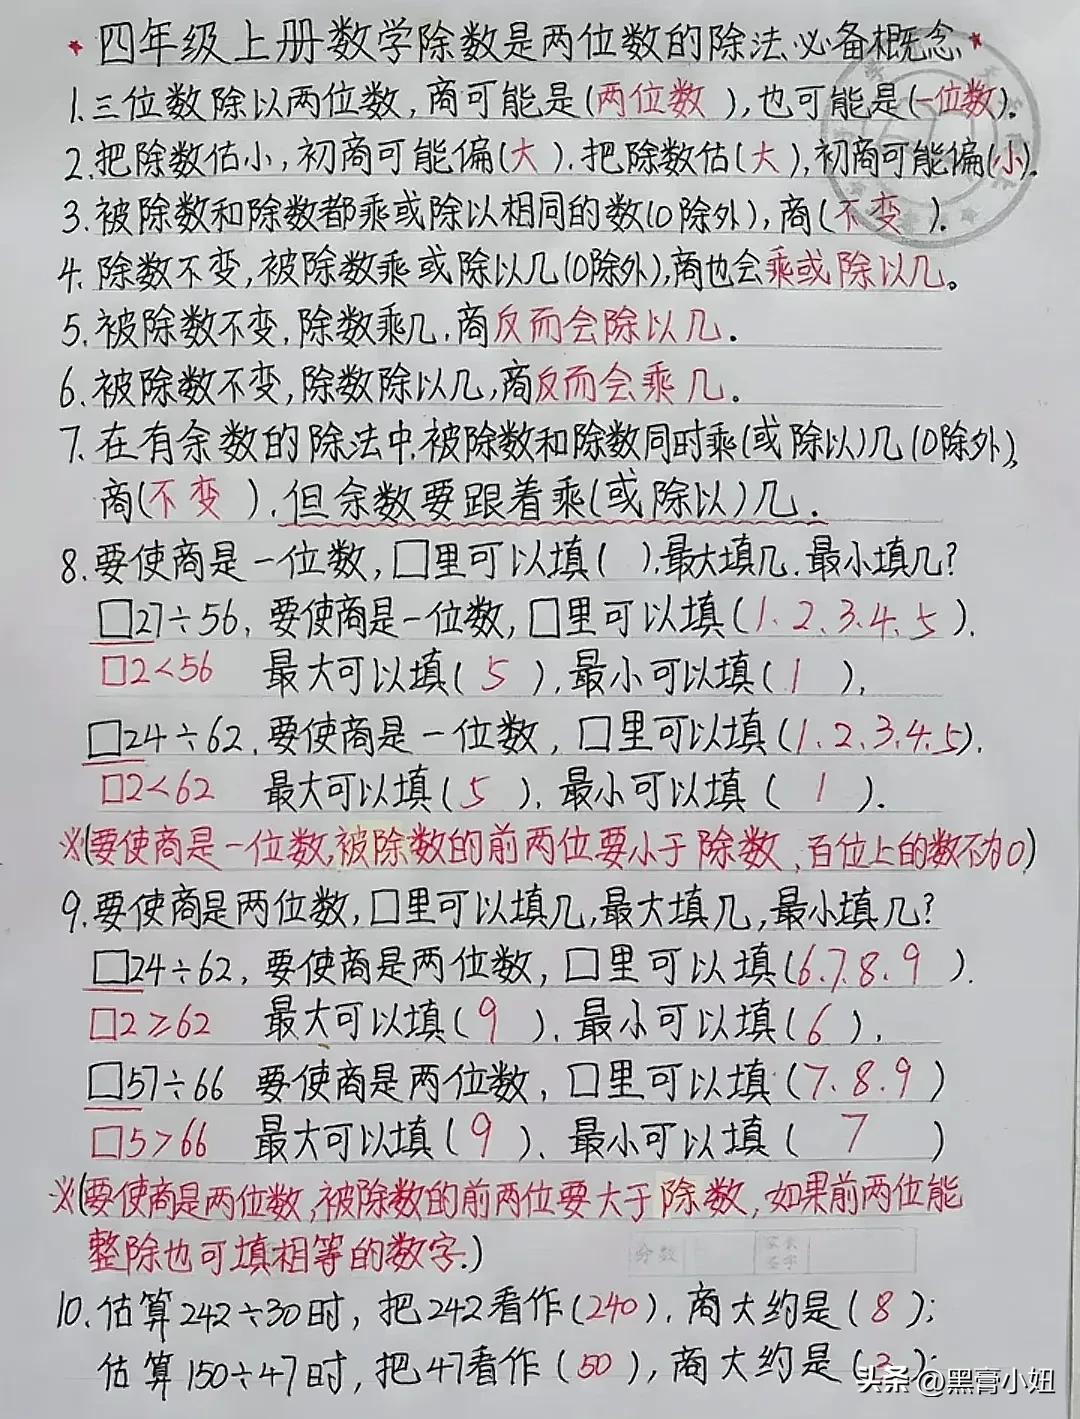 四年级上册数学除数是两位数的除法必备概念
1.三位数除以两位数,商可能是(两位数),也可能是(一位数).
2.把除数估小,初商可能偏(大).把除数估(大),初商可能偏(小).
3.被除数和除数都乘或除以相同的数(0除外),商(不变).
4.除数不变,被除数乘或除以几(0除外),商也会乘或除以几。
5.被除数不变,除数乘几,商反而会除以几.
6.被除数不变,除数除以几,商反而会乘几.
7.在有余数的除法中,被除数和除数同时乘(或除以)几(0除外),
商(不变).但余数要跟着乘(或除以)几.
8.要使商是一位数,□里可以填( ),最大填几.最小填几?
□27÷56,要使商是一位数,□里可以填(1、2、3、4、5).
□2<56 最大可以填(5),最小可以填(1),
□24÷62,要使商是一位数,□里可以填(1、2、3、4、5).
□2<62 最大可以填(5),最小可以填(1).
※(要使商是一位数,被除数的前两位要小于除数、百位上的数不为0)
9.要使商是两位数,□里可以填几,最大填几,最小填几?
□24÷62,要使商是两位数,□里可以填(6.7.8.9).
□2≥62 最大可以填(9),最小可以填(6),
□57÷66 要使商是两位数,□里可以填(7.8.9)
□5>66 最大可以填(9)、最小可以填(7)
※(要使商是两位数,被除数的前两位要大于除数,如果前两位能
整除也可填相等的数字.)
分数 家长签字
10.估算242÷30时,把242看作(240),商大约是(8);
估算150÷47时,把47看作(50),商大约是(3);
头条 @黑膏小妞